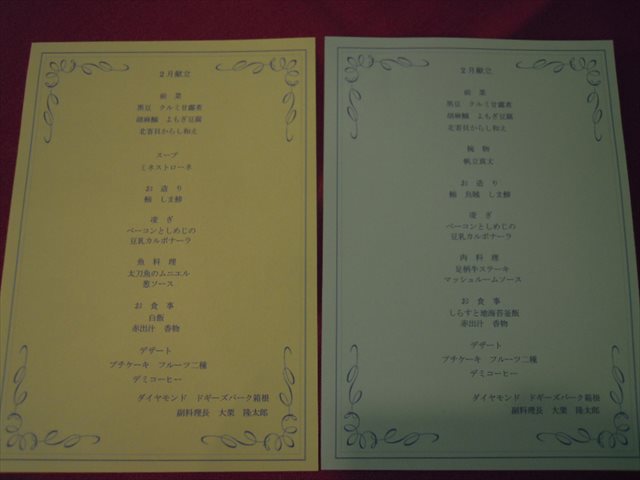 2月献立
前菜
黒豆 クルミ甘露煮
胡麻鰯 よもぎ豆腐
北寄貝からし和え
スープ
ミネストローネ
お造り
鮪 しま鯵
凌ぎ
ベーコンとしめじの
豆乳カルボナーラ
魚料理
太刀魚のムニエル
葱ソース
お食事
白飯
赤出汁 香物
デザート
プチケーキ フルーツ二種
デミコーヒー
ダイヤモンド ドギーズパーク箱根
副料理長 大栗 隆太郎
2月献立
前菜
黒豆 クルミ甘露煮
胡麻鰯 よもぎ豆腐
北寄貝からし和え
椀物
帆立真丈
お造り
鮪 しま鯵
凌ぎ
ベーコンとしめじの
豆乳カルボナーラ
肉料理
足柄牛ステーキ
マッシュルームソース
お食事
しらすと地海苔釜飯
赤出汁 香物
デザート
プチケーキ フルーツ二種
デミコーヒー
ダイヤモンド ドギーズパーク箱根
副料理長 大栗 隆太郎